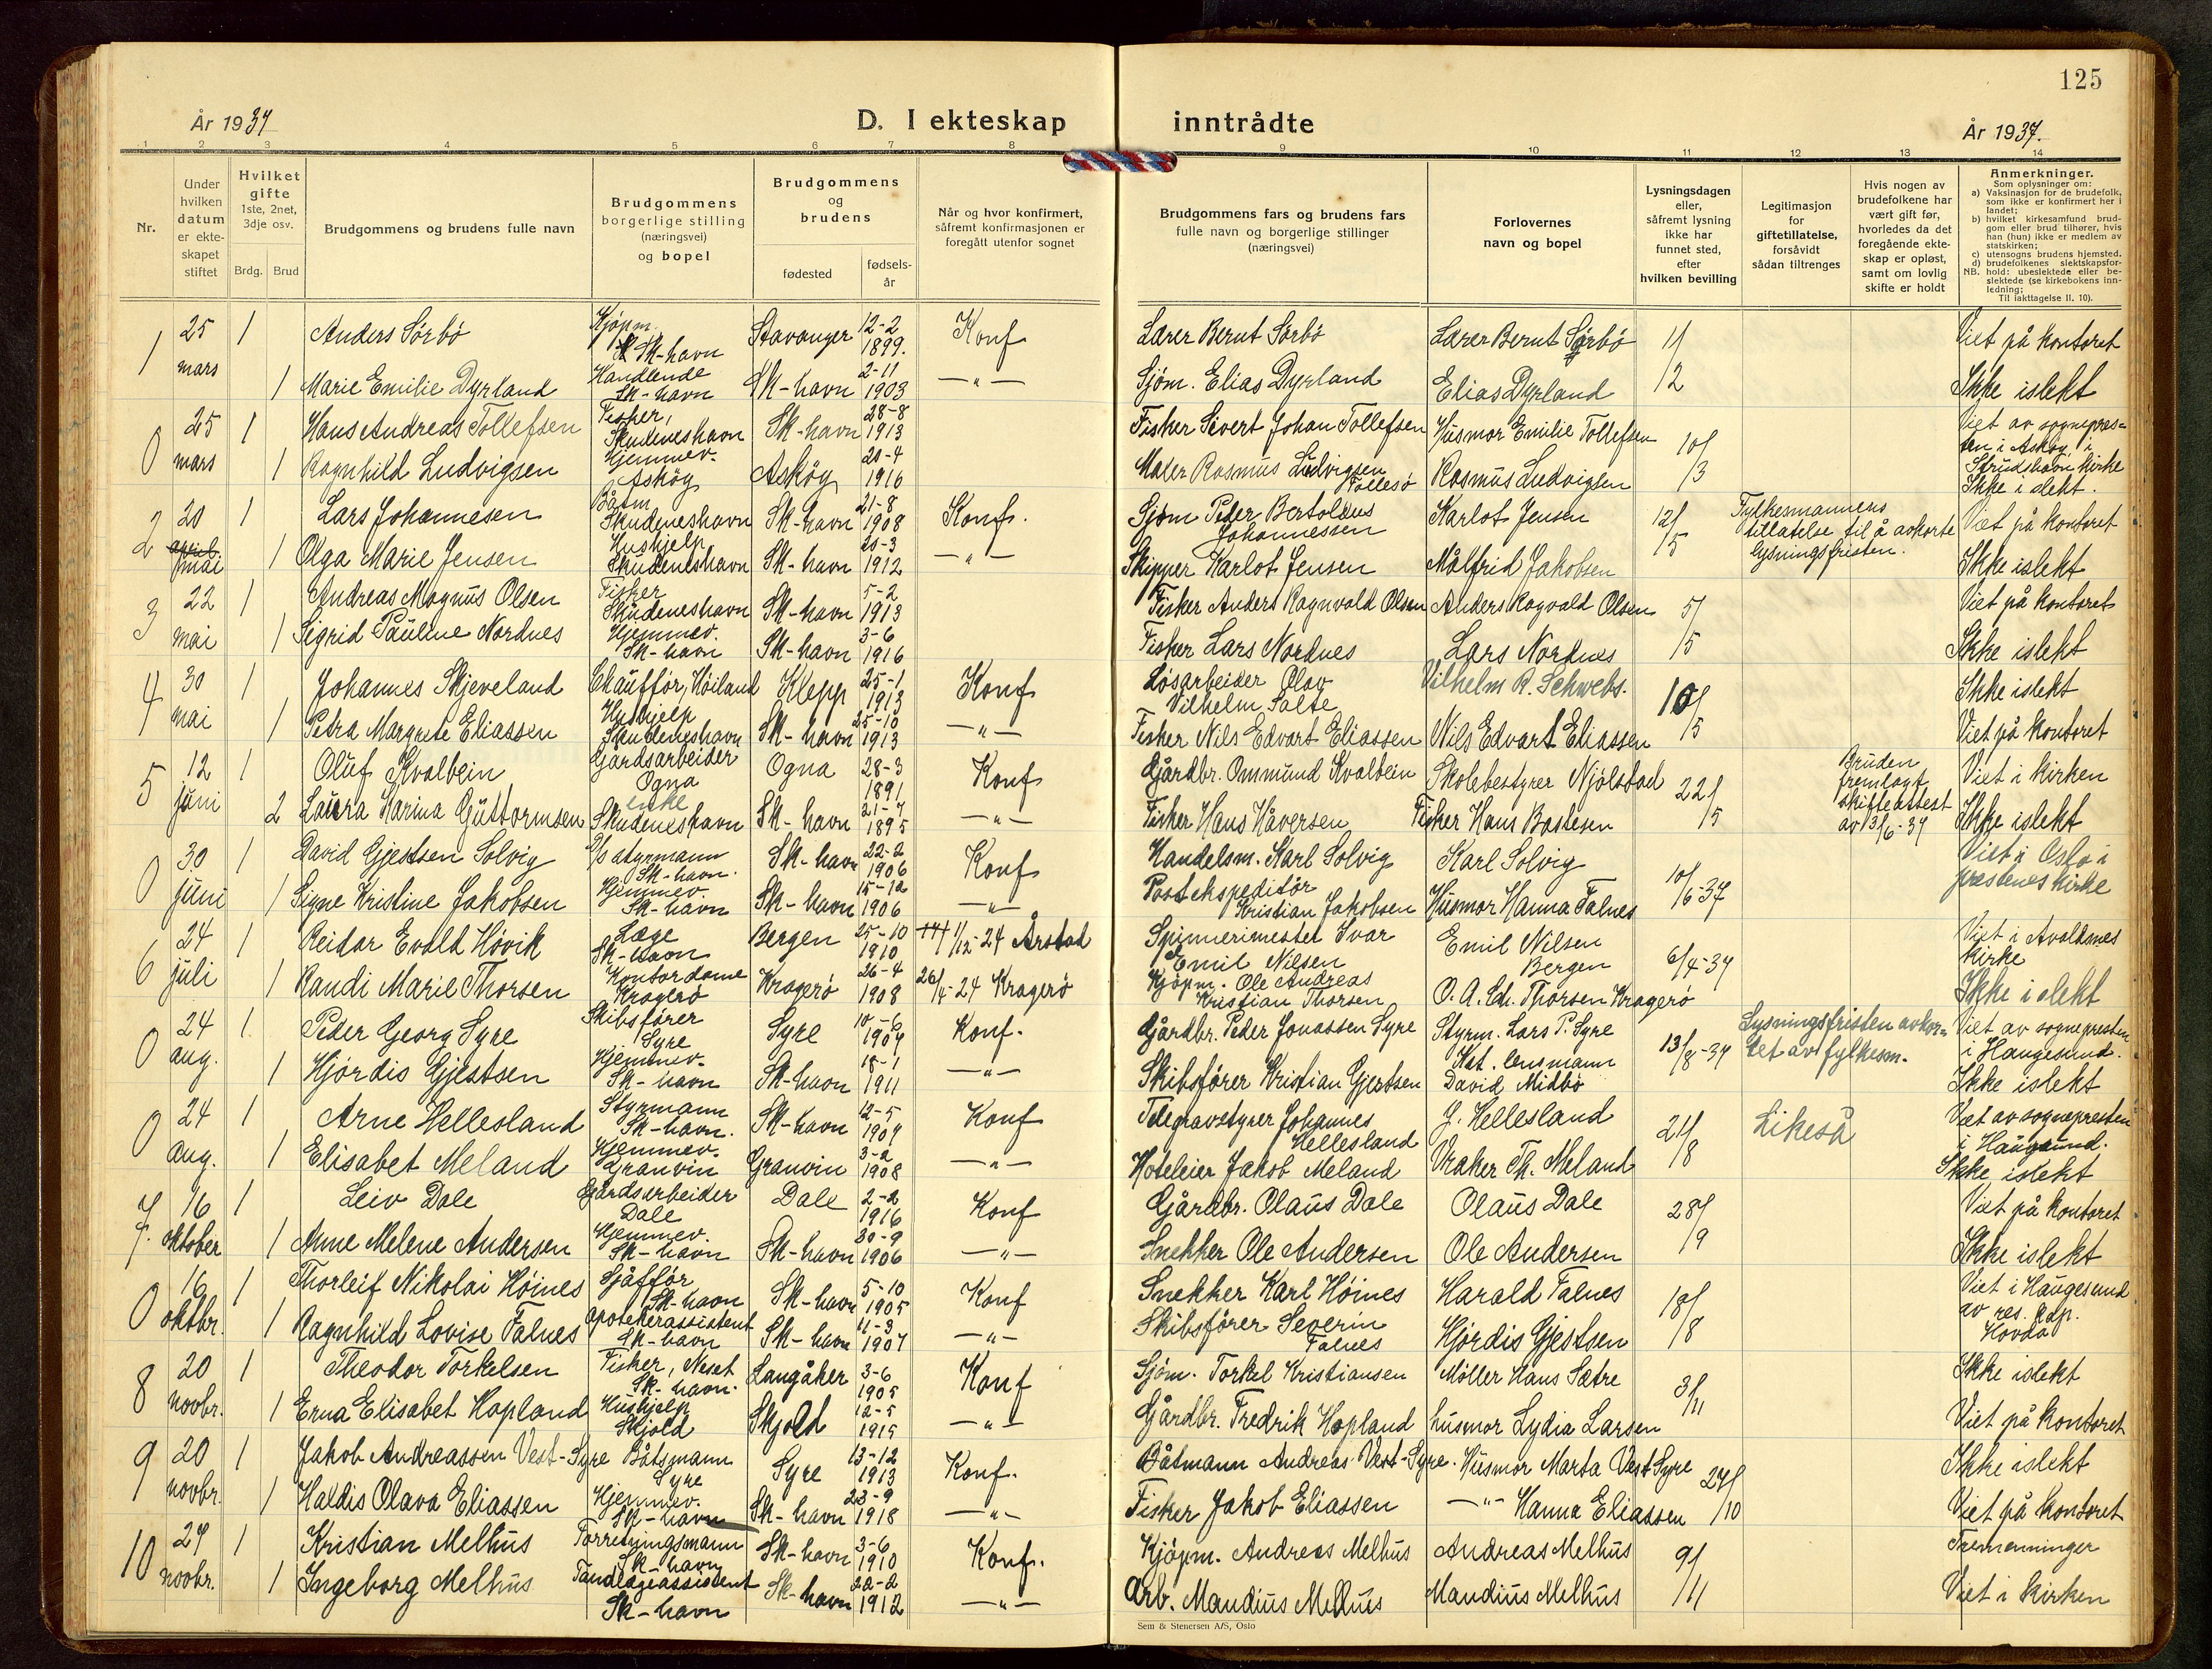 125
År 1937
D. I ekteskap inntrådte
År 1937.
1 2 3 4 5 6 7 8 9 10 11 12 13 14
Nr.
Under hvilken datum er ekteskapet stiftet
Hvilket gifte 1ste, 2net, 3dje osv.
Brdg. Brud
Brudgommens og brudens fulle navn
Brudgommens borgerlige stilling (næringsvei) og bopel
Brudgommens og brudens
fødested
fødselsår
Når og hvor konfirmert, såfremt konfirmasjonen er foregått utenfor sognet
Brudgommens fars og brudens fars fulle navn og borgerlige stillinger (næringsvei)
Forlovernes navn og bopel
Lysningsdagen eller, såfremt lysning ikke har funnet sted, efter hvilken bevilling
Legitimasjon for giftetillatelse, forsåvidt sådan tiltrenges
Hvis nogen av brudefolkene har vært gift før, hvorledes da det foregående ekteskap er opløst, samt om lovlig skifte er holdt
Anmerkninger.
Som oplysninger om:
a) Vaksinasjon for de brudefolk, som ikke er konfirmert her i landet;
b) hvilket kirkesamfund brudgom eller brud tilhører, hvis han (hun) ikke er medlem av statskirken;
c) utensogns brudens hjemsted.
d) brudefolkenes slektskapsforhold: ubeslektede eller beslektede (se kirkebokens innledning;
NB. Til iakttagelse II. 10).
1 25 mars 1 Anders Sörbö Kjöpm. Sk-havn Stavanger 12-2 1899. Konf Lærer Bernt Sörbö Lærer Bernt Sörbö 11/12 Viet på kontoret
1 Marie Emilie Dyrland Handlende Sk-havn Sk-havn 2-11 1903 —"— Sjöm. Elias Dyrland Elias Dyrland Ikke islekt
0 25 mars 1 Hans Andreas Tollefsen Fisker, Skudeneshavn Sk-havn 28-8 1913 Fisker Sivert Johan Tollefsen Husmor Emilie Tollefsen 10/3 Viet av sognepresten i Askög i Strudshavn kirke
1 Ragnhild Ludvigsen Hjemmev. Askög Askög 20-4 1916 Maler Rasmus Ludvigsen Follesö Rasmus Ludvigsen Ikke i slekt.
2 20 april mai 1 Lars Johannesen Båtsm Skudeneshavn Sk-havn 21-8 1908 Konf. Sjöm Peder Bertoldus Johannessen Karlot Jensen 12/5 Fylkesmannens tillatelse til å avkorte lysningsfristen. Viet på kontoret
1 Olga Marie Jensen Hushjelp Skudeneshavn Sk-havn 20-3 1912 —"— Skipper Karlot Jensen Målfrid Jakobsen Ikke islekt
3 22 mai 1 Andreas Magnus Olsen Fisker Skudeneshavn Sk-havn 5-2 1913 Fisker Anders Ragnvald Olsen Anders Ragvald Olsen 5/5 Viet på kontoret
1 Sigrid Pauline Nordnes Hjemmev. Sk-havn Sk-havn 3-6 1916 Fisker Lars Nordnes Lars Nordnes Ikke islekt
4 30 mai 1 Johannes Skjeveland Chaufför, Höiland Klepp 25-1 1913 Konf Lösarbeider Olav Vilhelm Salte Vilhelm R. Schwebs. 10/5 Ikke islekt
1 Petra Margrete Eliassen Hushjelp Skudeneshavn Sk-havn 25-10 1913 —"— Fisker Nils Edvart Eliassen Nils Edvart Eliassen Viet på kontoret
5 12 juni 1 Oluf Kvalbein Gårdsarbeider Ogna Ogna 28-3 1891 Konf Gårdbr. Ommund Kvalbein Skolebestyrer Njölstad 22/5 Bruden fremlagt skifteattest av 3/6-37 Viet i kirken
2 Laura Karina Guttormsen enke Skudeneshavn Sk-havn 21-7 1895 —"— Fisker Hans Håversen Fisker Hans Bastesen Ikke islekt
0 30 juni 1 David Gjestsen Solvig S/s styrmann Sk-havn. Sk-havn 22-2 1906 Konf Handelsm. Karl Solvig Karl Solvig 10/6-37 Viet i Oslo i prestenes kirke
1 Signe Kristine Jakobsen Hjemmev. Sk-havn Sk-havn 15-12 1906 —"— Postekspeditör Kristian Jakobsen Husmor Hanna Falnes
6 24 juli 1 Reidar Evald Hövik Læge Sk-havn Bergen 25-10 1910 1/12-24 Årstad Spinnerimester Ivar Emil Nilsen Emil Nilsen Bergen 6/4-37 Viet i Avaldsnes kirke
1 Randi Marie Thorsen Kontordame Kragerö Kragerö 26-4 1908 26/4-24 Kragerö Kjöpm. Ole Andreas Kristian Thorsen O. A. Ch. Thorsen Kragerö Ikke i slekt
0 24 aug. 1 Peder Georg Syre Skibsförer Syre Syre 10-6 1904 Konf. Gårdbr. Peder Jonassen Syre Styrm. Lars P. Syre 13/8-37 Lysningsfristen avkortet av fylkesm. Viet av sognepresten i Haugesund.
1 Hjördis Gjestsen Hjemmev. Sk-havn Sk-havn 18-1 1911 —"— Skibsförer Kristian Gjestsen Kst. lensmann David Midbö Ikke islekt
0 24 aug. 1 Arne Hellesland Styrmann Sk-havn. Sk-havn 12-5 1907 Konf Telegravstyrer Johannes Hellesland J. Hellesland 21/8 Likeså Viet av sognepresten i Haugesund.
1 Elisabet Meland Hjemmev. Granvin Granvin 3-2 1908 —"— Hoteleier Jakob Meland Vraker Th. Meland Ikke islekt
7 16 oktober 1 Leiv Dale Gårdsarbeider Dale Dale 2-2 1916 Konf Gårdbr. Olaus Dale Olaus Dale 28/9 Viet på kontoret
1 Anne Melene Andersen Hjemmev. Sk-havn Sk-havn 30-9 1906 —"— Snekker Ole Andersen Ole Andersen Ikke islekt
0 16 oktbr. 1 Thorleif Nikolai Höines Sjåfför Sk-havn Sk-havn 5-10 1905 Konf Snekker Karl Höines Harald Falnes 18/8 Viet i Haugesund av res. kap. Hovda
1 Ragnhild Lovise Falnes Apotekerassistent Sk-havn Sk-havn 11-3 1907 —"— Skibsförer Severin Falnes Hjördis Gjestsen
8 20 novbr. 1 Theodor Torkelsen Fisker, Neset Sk-havn. Langåker 3-6 1905 Konf Sjöm. Torkel Kristiansen Möller Hans Sætre 3/11 Ikke islekt
1 Erna Elisabet Hopland Hushjelp Skjold Skjold 12-5 1915 —"— Gårdbr. Fredrik Hopland husmor Lydia Larsen Viet på kontoret
9 20 novbr. 1 Jakob Andreassen Vest-Syre Båtsmann Syre Syre 13-12 1913 Konf. Båtmann Andreas Vest-Syre. Husmor Marta Vest Syre 27/10 Ikke islekt
1 Haldis Olava Eliassen Hjemmev. Sk-havn Sk-havn 23-9 1918 —"— Fisker Jakob Eliassen —"— Hanna Eliassen Viet på kontoret
10 27 novbr. 1 Kristian Melhus Forretningsmann Sk-havn Sk-havn 3-6 1910 Konf. Kjöpm. Andreas Melhus Andreas Melhus 9/11 Tremenninger
1 Ingeborg Melhus Tandlægeassistent Sk-havn Sk-havn 22-2 1912 —"— Arb. Mandius Melhus Mandius Melhus Viet i kirken
Sem & Stenersen A/S, Oslo